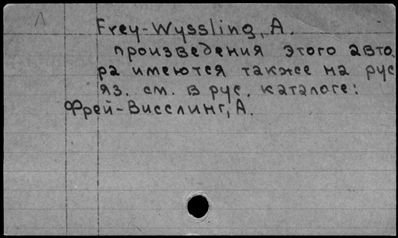 Frey-Wyssling, A.
произведения этого авто.
ра имеются также на рус
яз. см. в рус. каталоге:
Фрей-Висслинг, А.